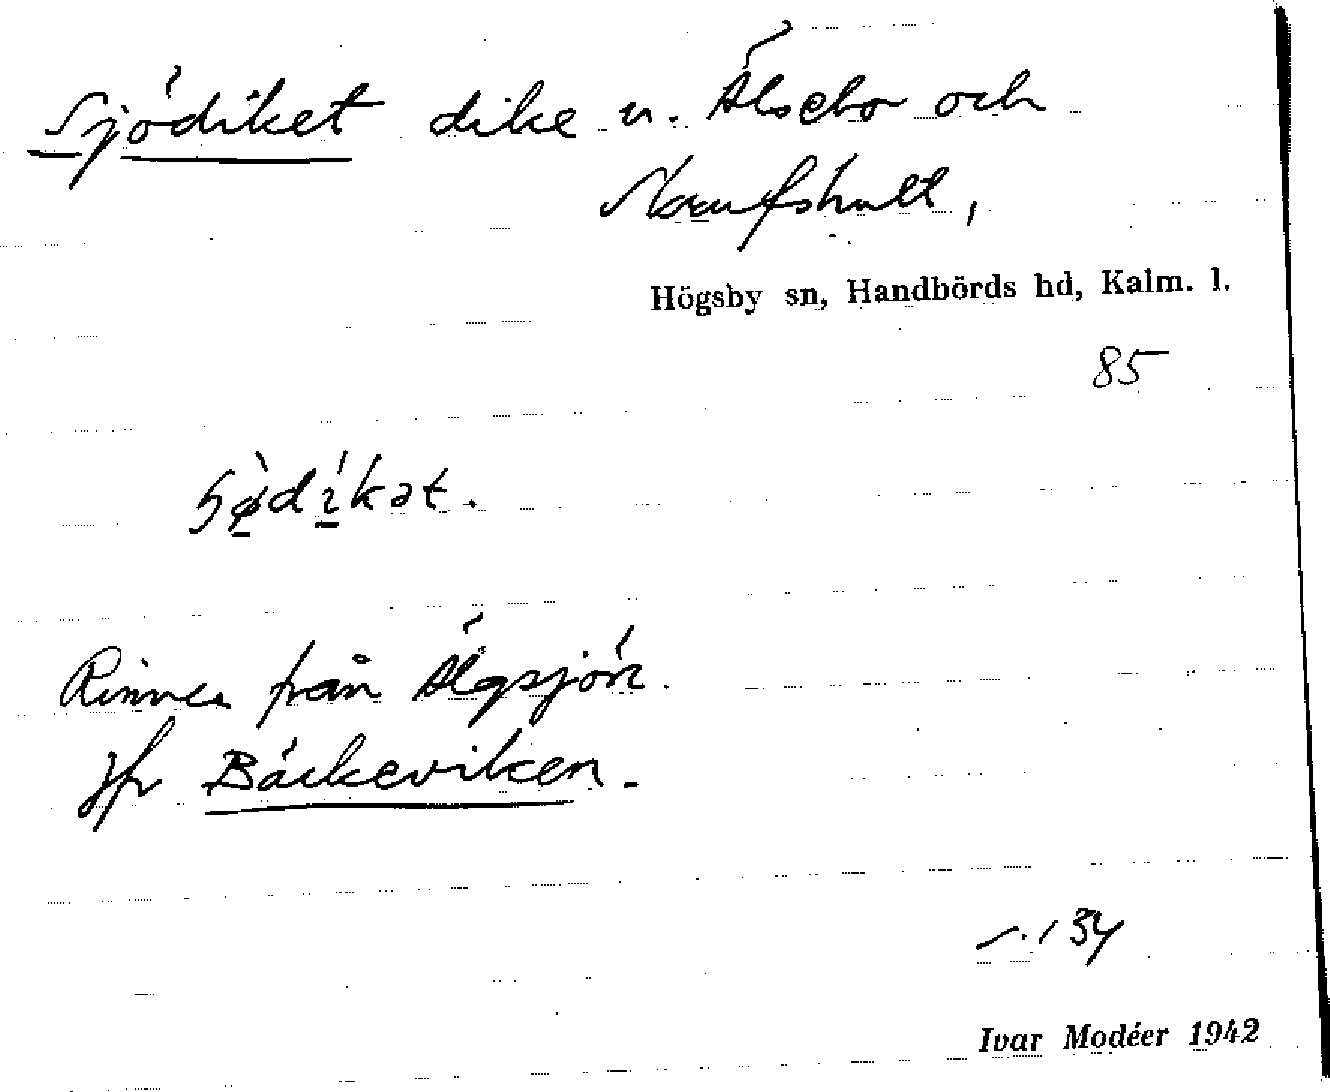 Sjödiket dike u. Älsebo och
Naurfshult,
Högsby sn, Handbörds hd, Kalm. l.
85
Rinner från Älgsjön.
Jfr Bäckeviken.
s. 134
Ivar Modéer 1942